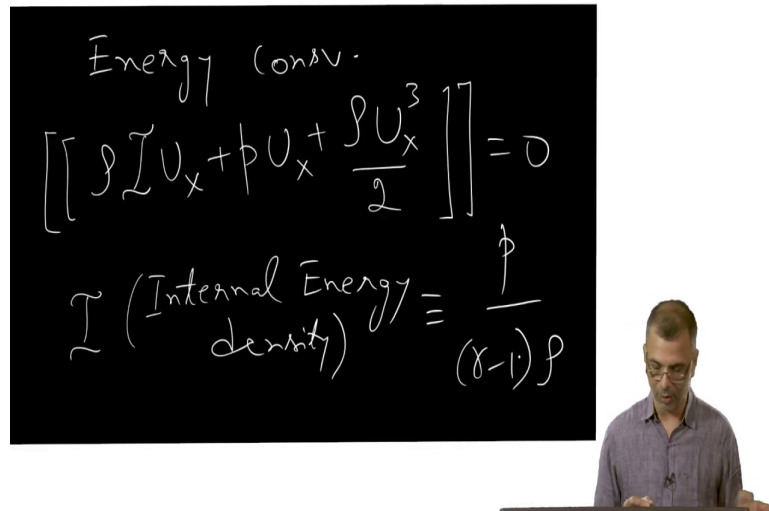 Energy Consv.
[[ρIU_x + pU_x + ρU_x^3/2]] = 0
I (Internal Energy density) ≡ p/((γ-1)ρ)